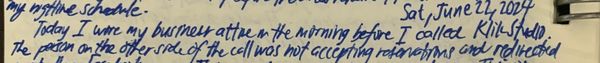 my nighttime schedule.
Sat, June 22, 2024
Today I wore my business attire in the morning before I called Klik Studio.
The person on the other side of the call was not accepting reservations and redirected